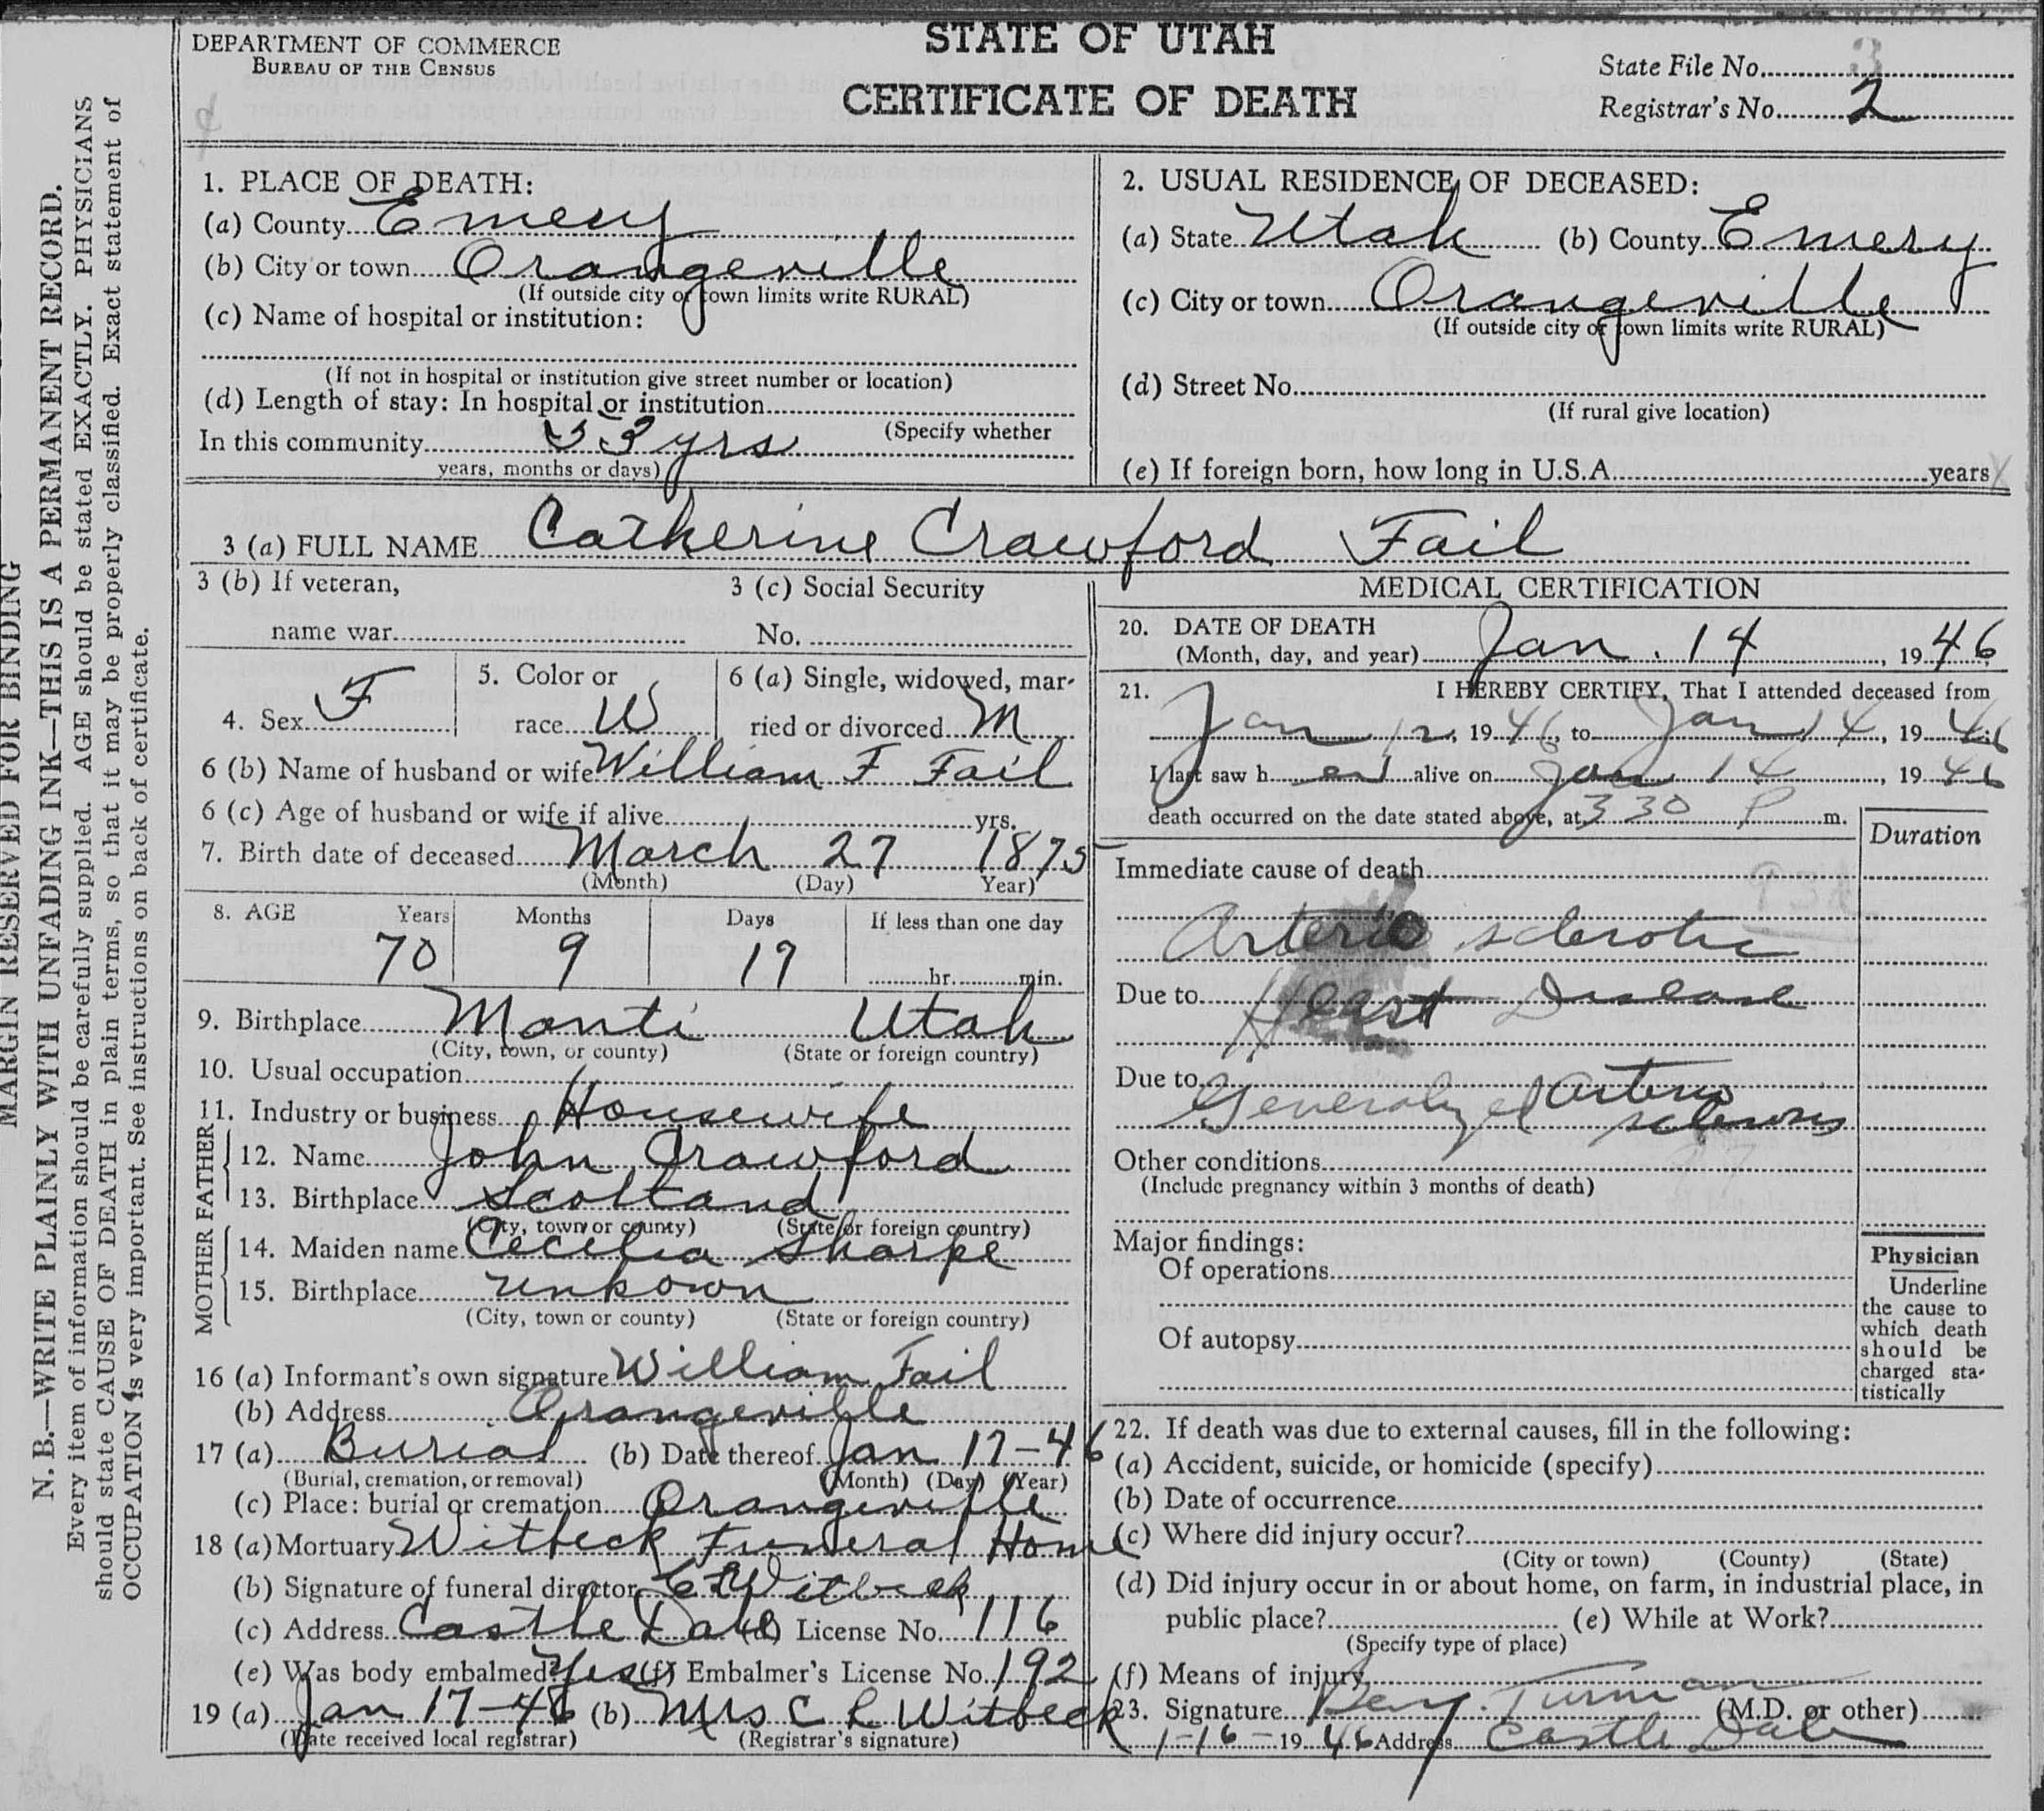 DEPARTMENT OF COMMERCE
BUREAU OF THE CENSUS
STATE OF UTAH
CERTIFICATE OF DEATH
State File No. 3
Registrar's No. 2
MARGIN RESERVED FOR BINDING
N. B.—WRITE PLAINLY WITH UNFADING INK—THIS IS A PERMANENT RECORD.
Every item of information should be carefully supplied. AGE should be stated EXACTLY. PHYSICIANS
should state CAUSE OF DEATH in plain terms, so that it may be properly classified. Exact statement of
OCCUPATION is very important. See instructions on back of certificate.
1. PLACE OF DEATH:
(a) County Emery
(b) City or town Orangeville
(If outside city or town limits write RURAL)
(c) Name of hospital or institution:
(If not in hospital or institution give street number or location)
(d) Length of stay: In hospital or institution
(Specify whether
In this community 53 yrs
years, months or days)
2. USUAL RESIDENCE OF DECEASED:
(a) State Utah (b) County Emery
(c) City or town Orangeville
(If outside city or town limits write RURAL)
(d) Street No.
(If rural give location)
(e) If foreign born, how long in U.S.A. years
3 (a) FULL NAME Catherine Crawford Fail
3 (b) If veteran,
name war
3 (c) Social Security
No.
4. Sex F
5. Color or
race W
6 (a) Single, widowed, mar-
ried or divorced M
6 (b) Name of husband or wife William F Fail
6 (c) Age of husband or wife if alive yrs.
7. Birth date of deceased March 27 1875
(Month) (Day) Year)
8. AGE Years Months Days If less than one day
70 9 17 hr. min.
9. Birthplace Manti Utah
(City, town, or county) (State or foreign country)
10. Usual occupation
11. Industry or business Housewife
FATHER
12. Name John Crawford
13. Birthplace Scotland
(City, town or county) (State or foreign country)
MOTHER
14. Maiden name Cecelia Sharpe
15. Birthplace unkown
(City, town or county) (State or foreign country)
16 (a) Informant's own signature William Fail
(b) Address Orangeville
17 (a) Burial (b) Date thereof Jan 17-46
(Burial, cremation, or removal) (Month) (Day) (Year)
(c) Place: burial or cremation Orangeville
18 (a) Mortuary Witbeck Funeral Home
(b) Signature of funeral director Witbeck
(c) Address Castle Dale (d) License No. 116
(e) Was body embalmed? Yes (f) Embalmer's License No. 192
19 (a) Jan 17-46 (b) Mrs C L Witbeck
(Date received local registrar) (Registrar's signature)
MEDICAL CERTIFICATION
20. DATE OF DEATH
(Month, day, and year) Jan. 14, 1946
21. I HEREBY CERTIFY, That I attended deceased from
Jan 12, 1946, to Jan 14, 1946
I last saw her alive on Jan 14, 1946
death occurred on the date stated above, at 3 30 P m.
Duration
Immediate cause of death
Arterio sclerotic
Due to Heart Disease
Due to Generalyzed Arterio
sclerosis
Other conditions
(Include pregnancy within 3 months of death)
Major findings:
Of operations
Of autopsy
Physician
Underline
the cause to
which death
should be
charged sta-
tistically
22. If death was due to external causes, fill in the following:
(a) Accident, suicide, or homicide (specify)
(b) Date of occurrence
(c) Where did injury occur?
(City or town) (County) (State)
(d) Did injury occur in or about home, on farm, in industrial place, in
public place? (e) While at Work?
(Specify type of place)
(f) Means of injury
23. Signature Turman (M.D. or other)
1-16-1946 Address Castle Dale